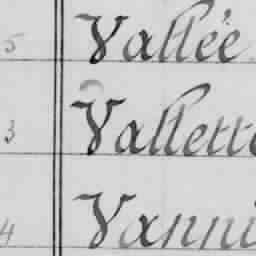 5 Vallée
3 Vallett
4 Vanni